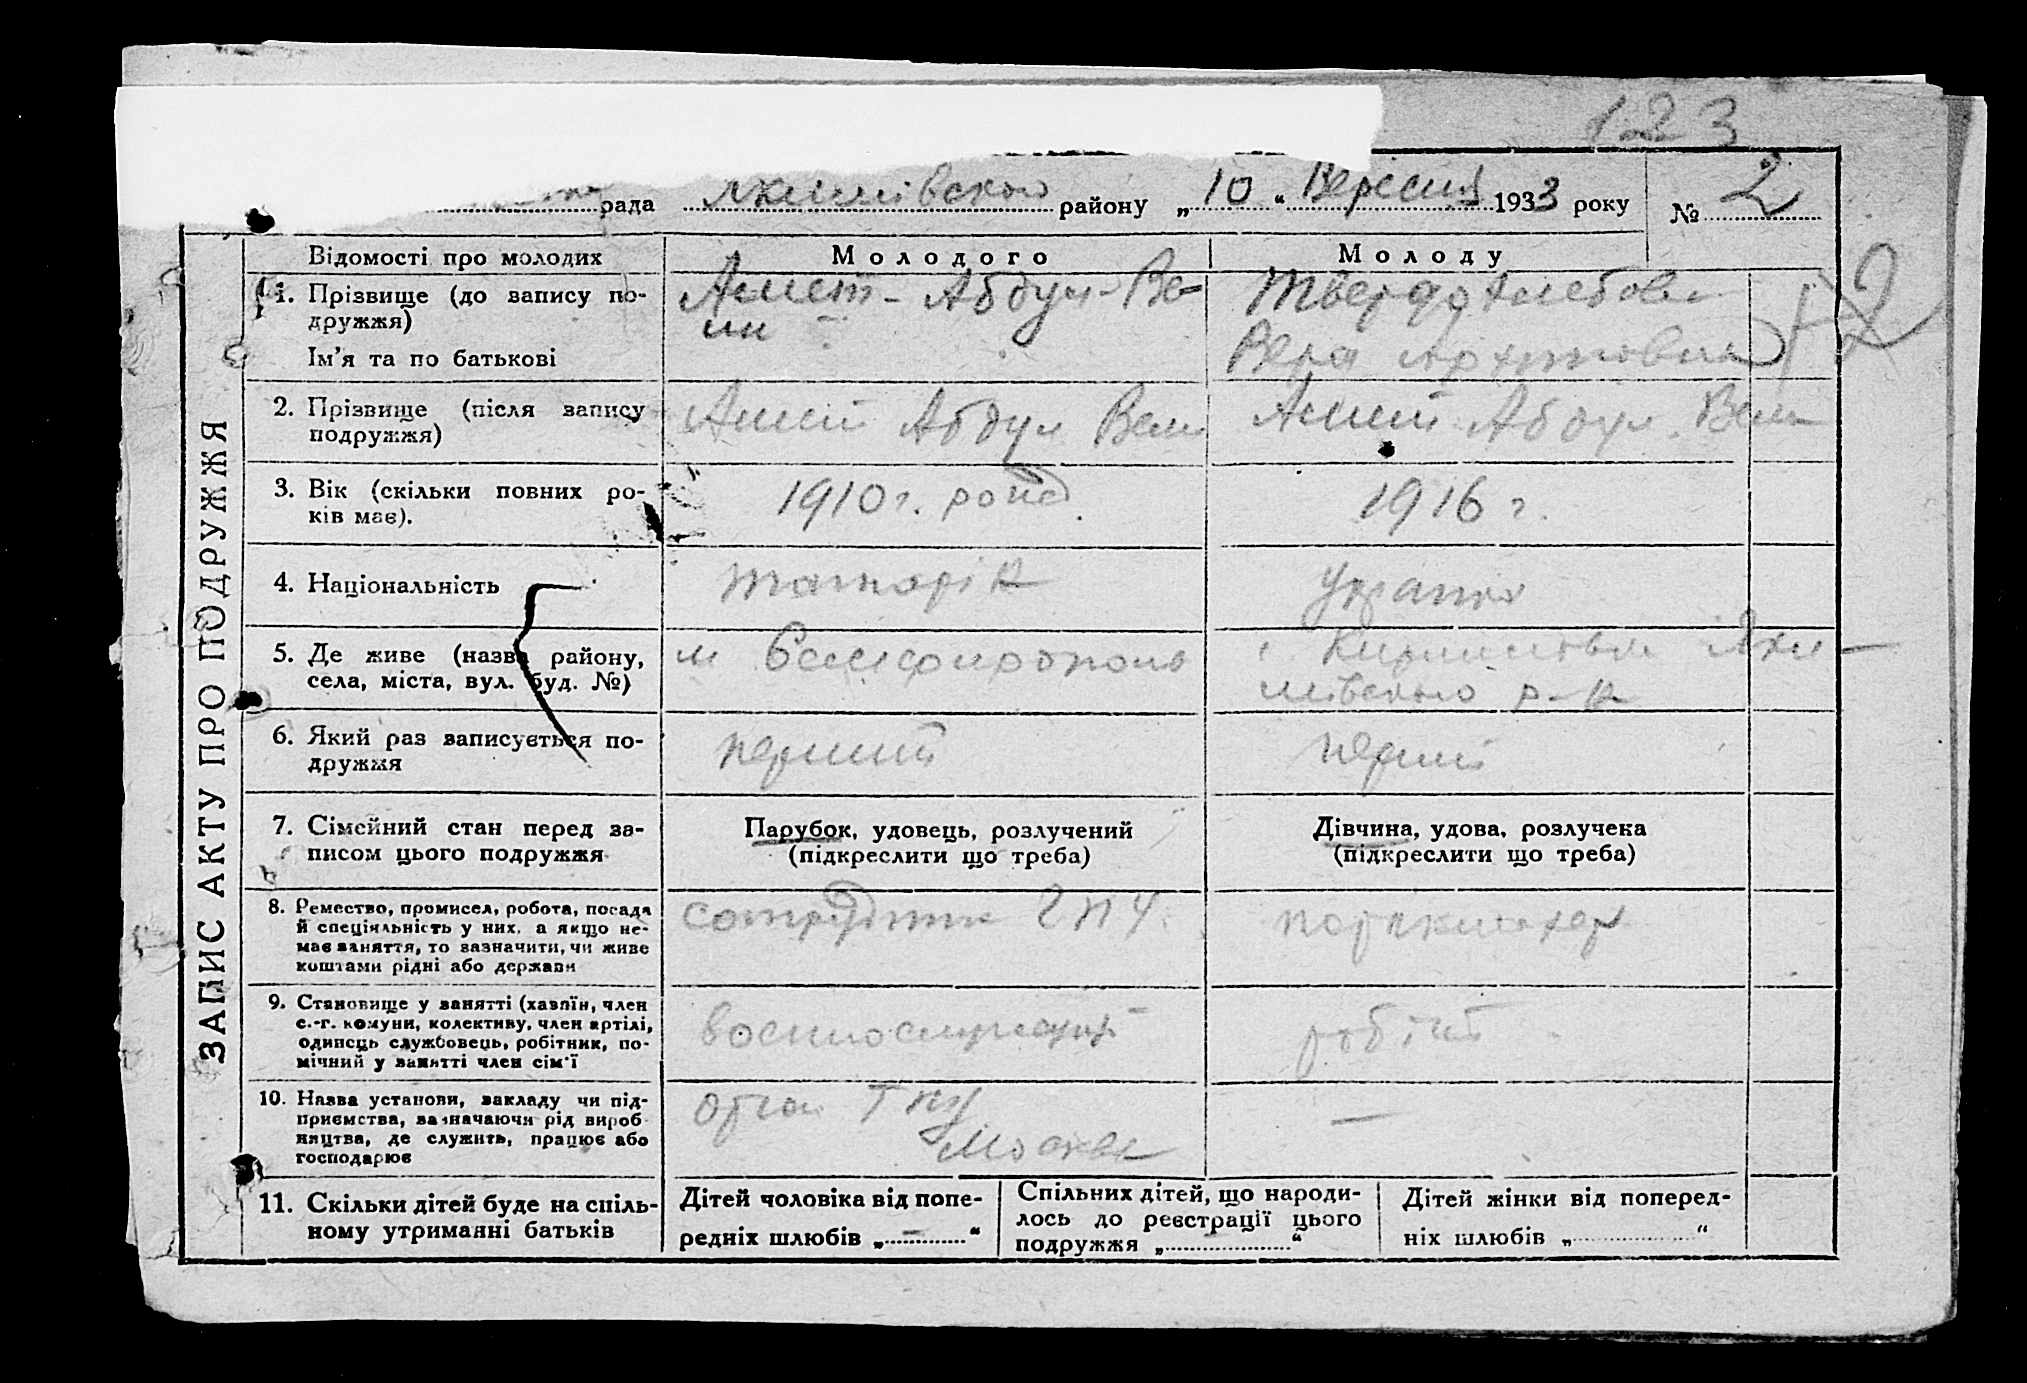 123
рада Якимівского району „10“ Вересня 1933 року № 2
ЗАПИС АКТУ ПРО ПОДРУЖЖЯ
Відомості про молодих
Молодого
Молоду
1. Прізвище (до запису по-
дружжя)
Ім'я та по батькові
Амет - Абдул - Ве-
ли
Твердохлебова
Вера Архиповна
2
2. Прізвище (після запису
подружжя)
Амет Абдул Вели
Амет Абдул Вели
3. Вік (скільки повних ро-
ків має).
1910 г. рожд.
1916 г.
4. Національність
татарін
5. Де живе (назва району,
села, міста, вул. буд. №)
м Семферополь
с Яки-
мівского р-н
6. Який раз записується по-
дружжя
перший
перший
7. Сімейний стан перед за-
писом цього подружжя
Парубок, удовець, розлучений
(підкреслити що треба)
Дівчина, удова, розлучека
(підкреслити що треба)
8. Ремество, промисел, робота, посада
й спеціяльність у них, а якщо не-
має заняття, то зазначити, чи живе
коштами рідні або держави
сотрудник ГПУ
парикмахер
9. Становище у занятті (хазяїн, член
с.-г. комуни, колективу, член артілі,
одинець службовець, робітник, по-
мічний у занятті член сім'ї
военнослужащий
робітн
10. Назва установи, закладу чи під-
приємства, зазначаючи рід вироб-
ництва, де служить, працює або
господарює
орган ГПУ
Москва
—
11. Скільки дітей буде на спіль-
ному утриманні батьків
Дітей чоловіка від попе-
редніх шлюбів „ — “
Спільних дітей, що народи-
лось до реєстрації цього
подружжя „ “
Дітей жінки від поперед-
ніх шлюбів „ “